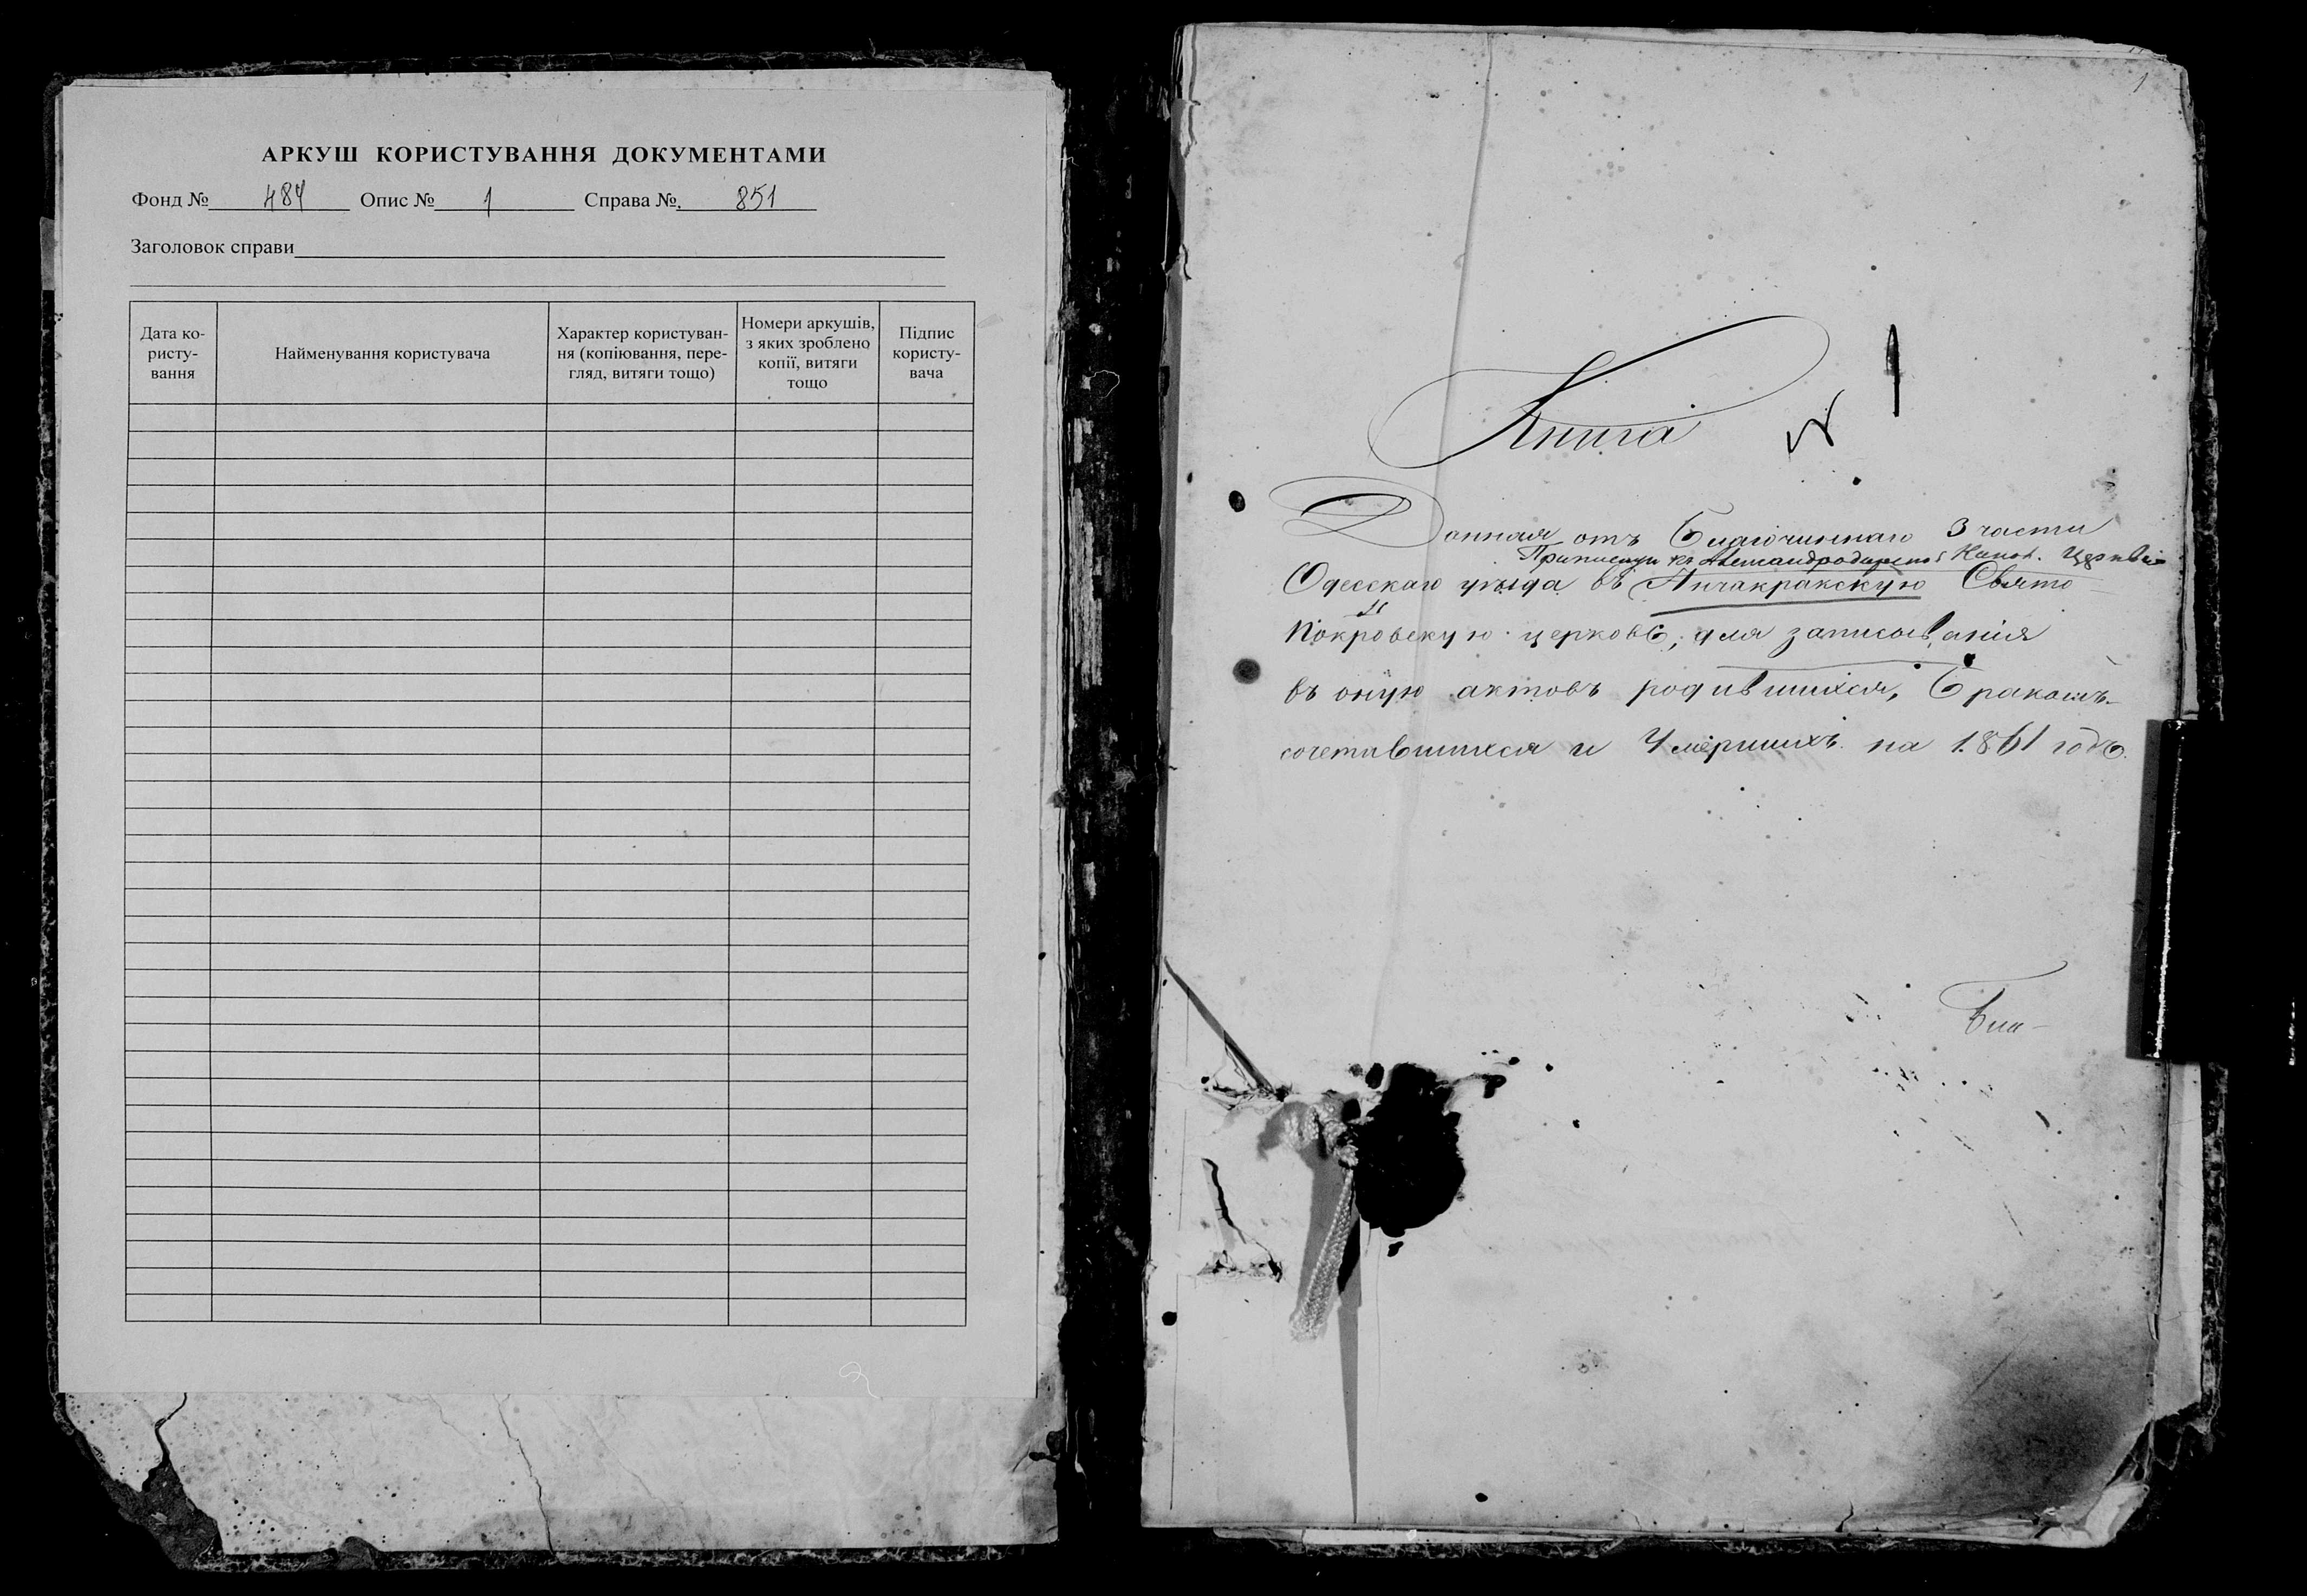 АРКУШ КОРИСТУВАННЯ ДОКУМЕНТАМИ
Фонд № 484 Опис № 1 Справа № 851
Заголовок справи
Дата ко-
ристу-
вання
Найменування користувача
Характер користуван-
ня (копіювання, пере-
гляд, витяги тощо)
Номери аркушів,
з яких зроблено
копії, витяги
тощо
Підпис
користу-
вача
1
1
Книга
Данная отъ Благочиннаго 3 части
Церкви
Одесскаго уѣзда въ Анчакракскую Свято-
Покровскую церковь, для записыванія
въ оную актовъ родившихся, бракомъ-
сочетавшихся и Умершихъ на 1861 годъ.
Бла-